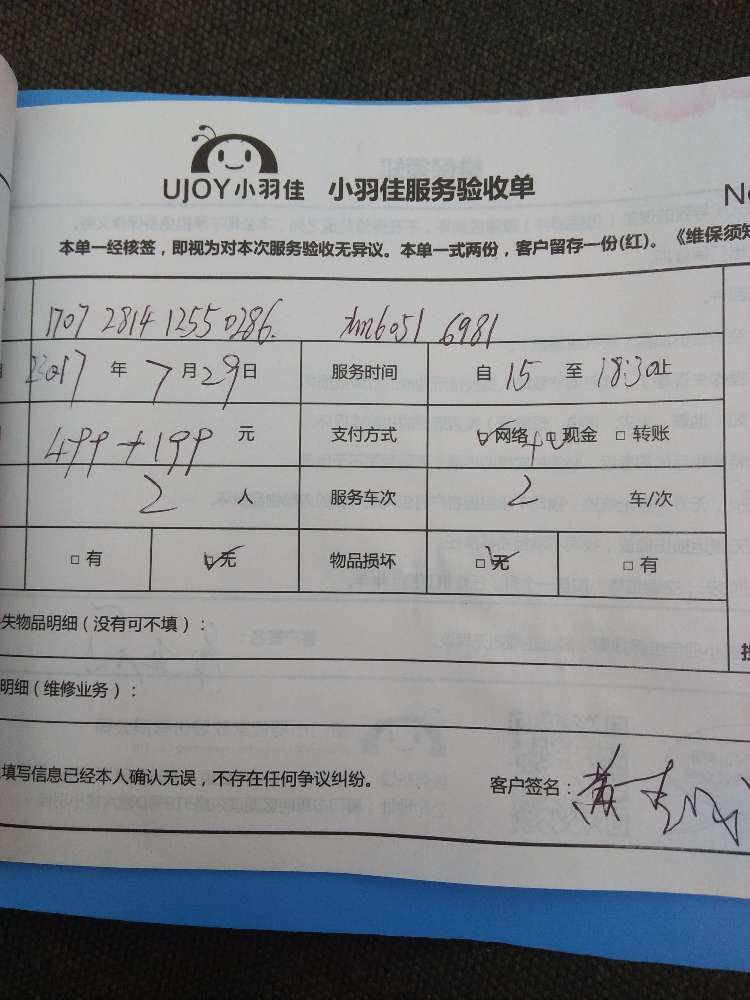 UJOY小羽佳 小羽佳服务验收单
本单一经核签，即视为对本次服务验收无异议。本单一式两份，客户留存一份(红)。《维保须知
1707 2814 1255 0286. 6051 6981
2017 年 7 月 29 日 服务时间 自 15 至 18:30 止
499+199 元 支付方式 网络 □现金 □ 转账
2 人 服务车次 2 车/次
□ 有 □无 物品损坏 □无 □ 有
失物品明细（没有可不填）：
明细（维修业务）：
填写信息已经本人确认无误，不存在任何争议纠纷。 客户签名：黄